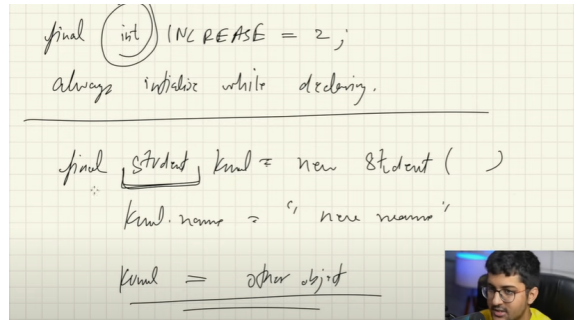 final int INCREASE = 2;
always initialize while declaring.
final Student kunal = new Student( )
kunal.name = "new name"
kunal = other object